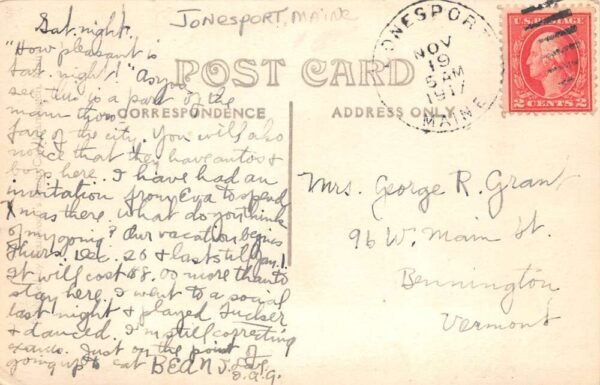 JONESPORT, MAINE
Sat. night.
"How pleasant is
Sat. night!" As you
see this is a part of the
main thoro-
fare of the city. You will also
notice that they have autos &
boys here. I have had an
invitation from Eva to spend
Xmas there. What do you think
of my going? Our vacation begins
Thurs. Dec. 20 & lasts till Jan. 1.
It will cost $8.00 more than to
stay here. I went to a social
last night & played Tucker
& danced. I'm still correcting
exams. Just on the point of
going up to eat BEANS.
POST CARD
CORRESPONDENCE
ADDRESS ONLY
JONESPORT
NOV
19
5 AM
1917
MAINE
U.S. POSTAGE
2 CENTS 2
Mrs. George R. Grant
96 W. Main St.
Bennington
Vermont